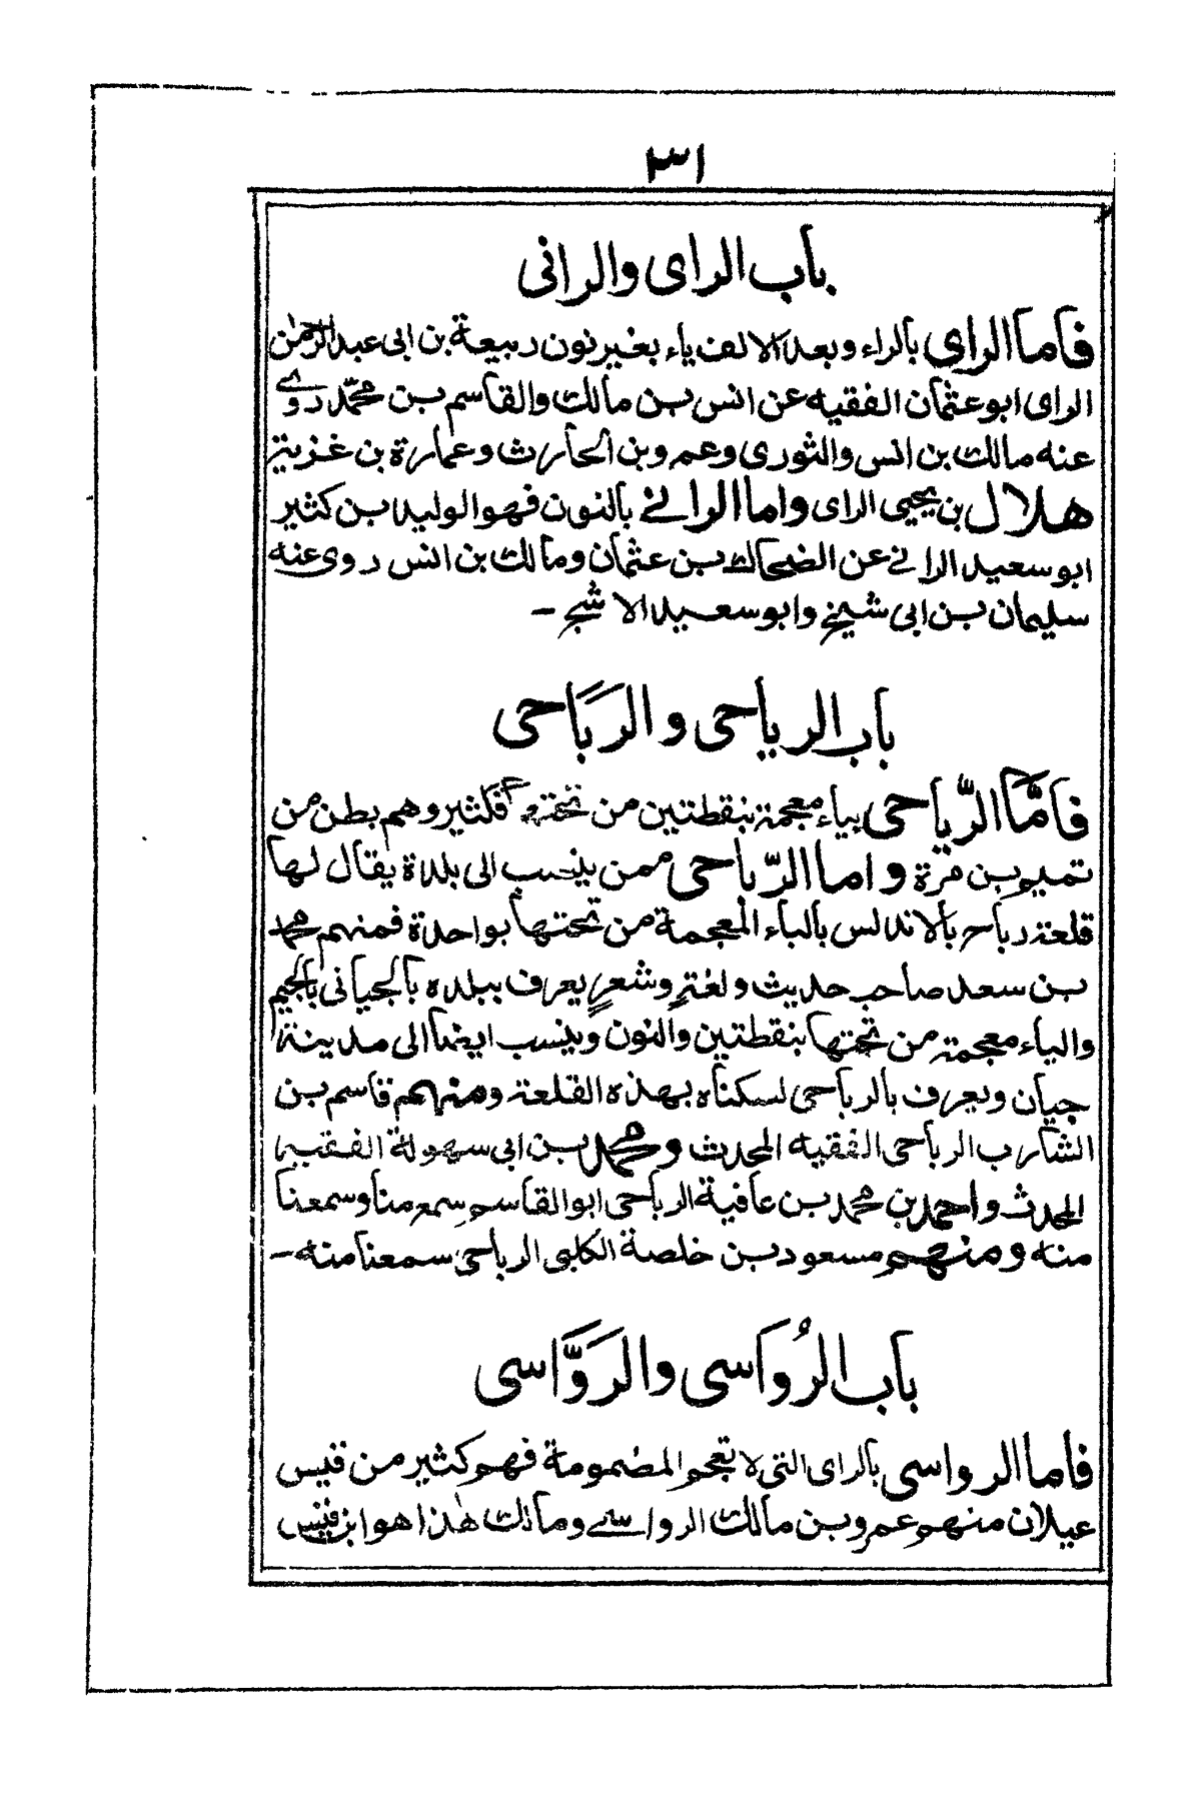 ٣١
باب الراى والرانى
فاما الراى بالراء وبعد الالف ياء بغير نون ربيعة بن ابى عبدالرحمٰن
الراى ابو عثمان الفقيه عن انس بن مالك والقاسم بن محمّد روے
عنه مالك بن انس والثورى وعمرو بن الحارث وعمارة بن غزية
هلال بن يحيى الراى واما الرانے بالنون فهو الوليد بن كثير
ابو سعيد الرانے عن الضحاك بن عثمان ومالك بن انس روى عنه
سليمان بن ابى شيخ وابو سعيد الاشج ـ
باب الرياحى والرَبَاحى
فامّا الرّياحى بياء معجمة بنقطتين من تحته فكثير وهم بطن من
تميم بن مرة واما الرّباحى ممن ينسب الى بلدة يقال لها
قلعة رباح بالاندلس بالباء المعجمة من تحتها بواحدة فمنهم محمد
بن سعد صاحب حديث ولغةٍ وشعرٍ يعرف ببلده بالجيانى بالجيم
والياء معجمة من تحتها بنقطتين والنون وينسب ايضا الى مدينة
جيان ويعرف بالرباحى لسكناه بهذه القلعة ومنهم قاسم بن
الشارب الرباحى الفقيه المحدث ومحمد بن ابى سهولة الفقيه
المحدث واحمد بن محمد بن عافية الرباحى ابو القاسم سمع منا وسمعنا
منه ومنهم مسعود بن خلصة الكلبى الرباحى سمعنا منه ـ
باب الرُواسى والرَوَّاسى
فاما الرواسى بالراى التى لا تعجم المضمومة فهم كثير من قيس
عيلان منهم عمرو بن مالك الرواسے ومالك هٰذا هو ابن قيس